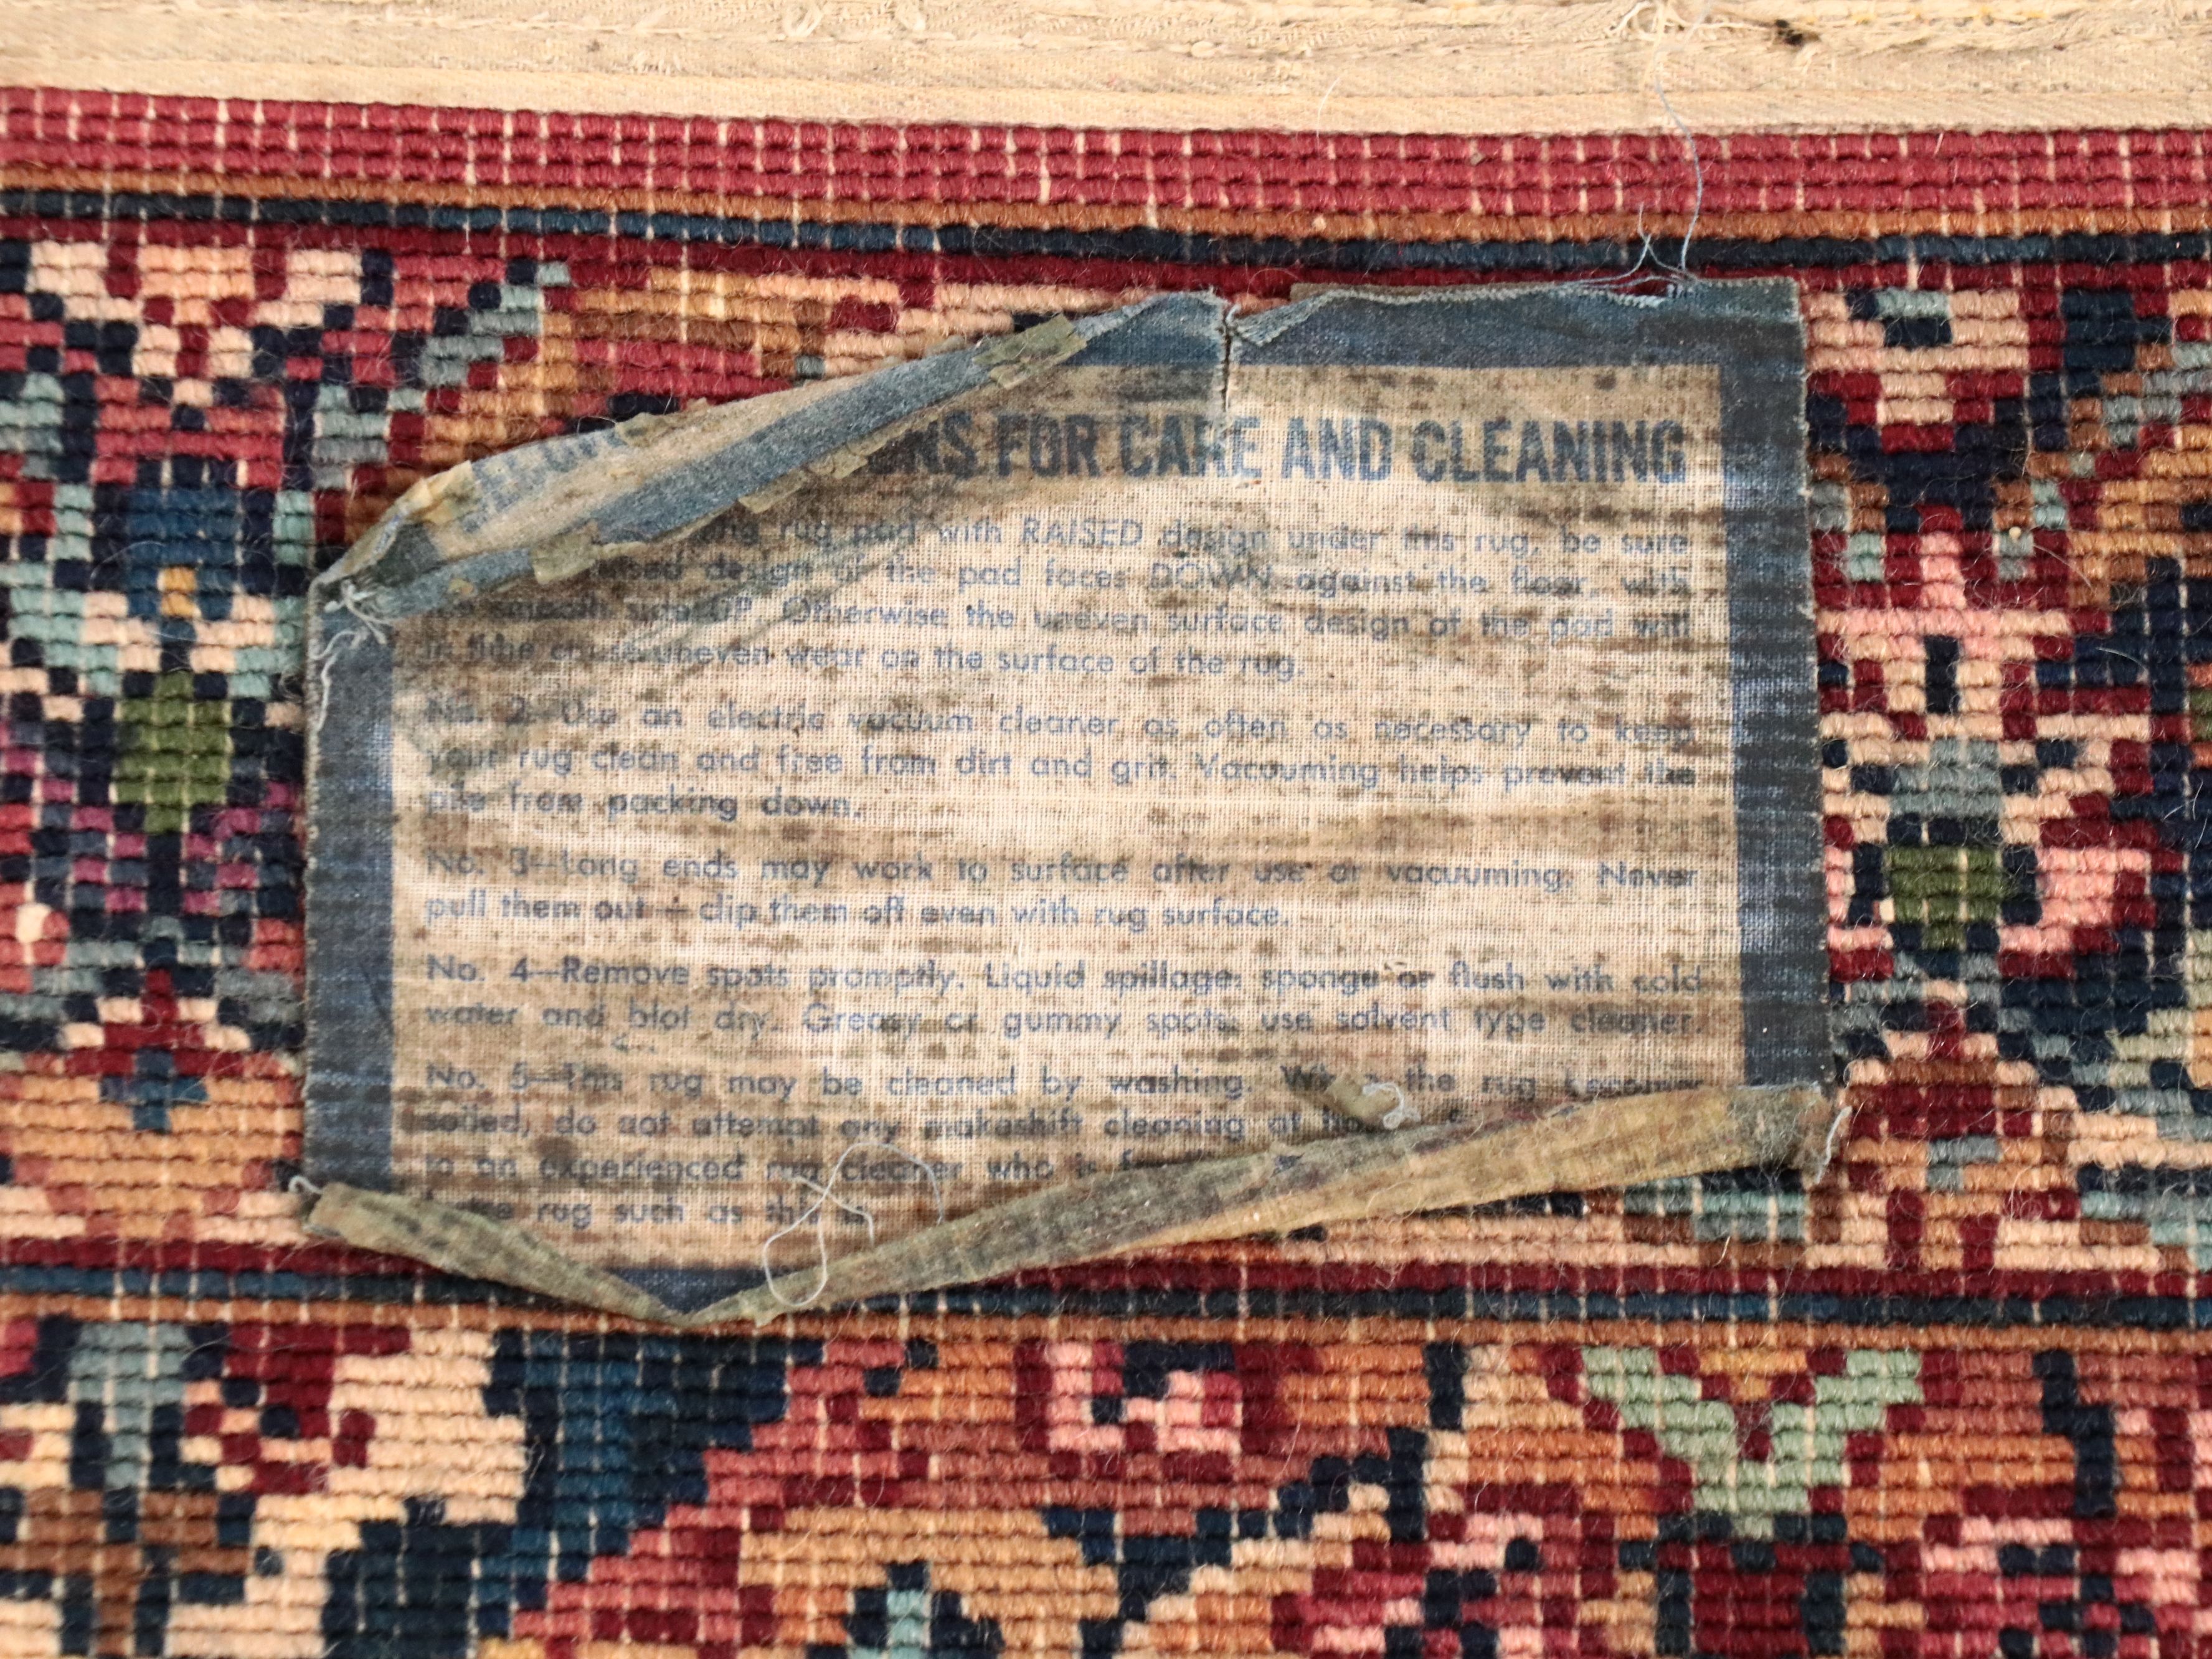 FOR CARE AND CLEANING
rug pad with RAISED design under this rug, be sure
design of the pad faces DOWN against the floor, with
the smooth side UP. Otherwise the uneven surface design of the pad will
in time cause uneven wear on the surface of the rug.
No. 2—Use an electric vacuum cleaner as often as necessary to keep
your rug clean and free from dirt and grit. Vacuuming helps prevent the
pile from packing down.
No. 3—Long ends may work to surface after use or vacuuming. Never
pull them out — clip them off even with rug surface.
No. 4—Remove spots promptly. Liquid spillage: sponge or flush with cold
water and blot dry. Greasy or gummy spots, use solvent type cleaner.
No. 5—This rug may be cleaned by washing. When the rug becomes
soiled, do not attempt any makeshift cleaning at
to an experienced rug cleaner who is
rug such as this is.